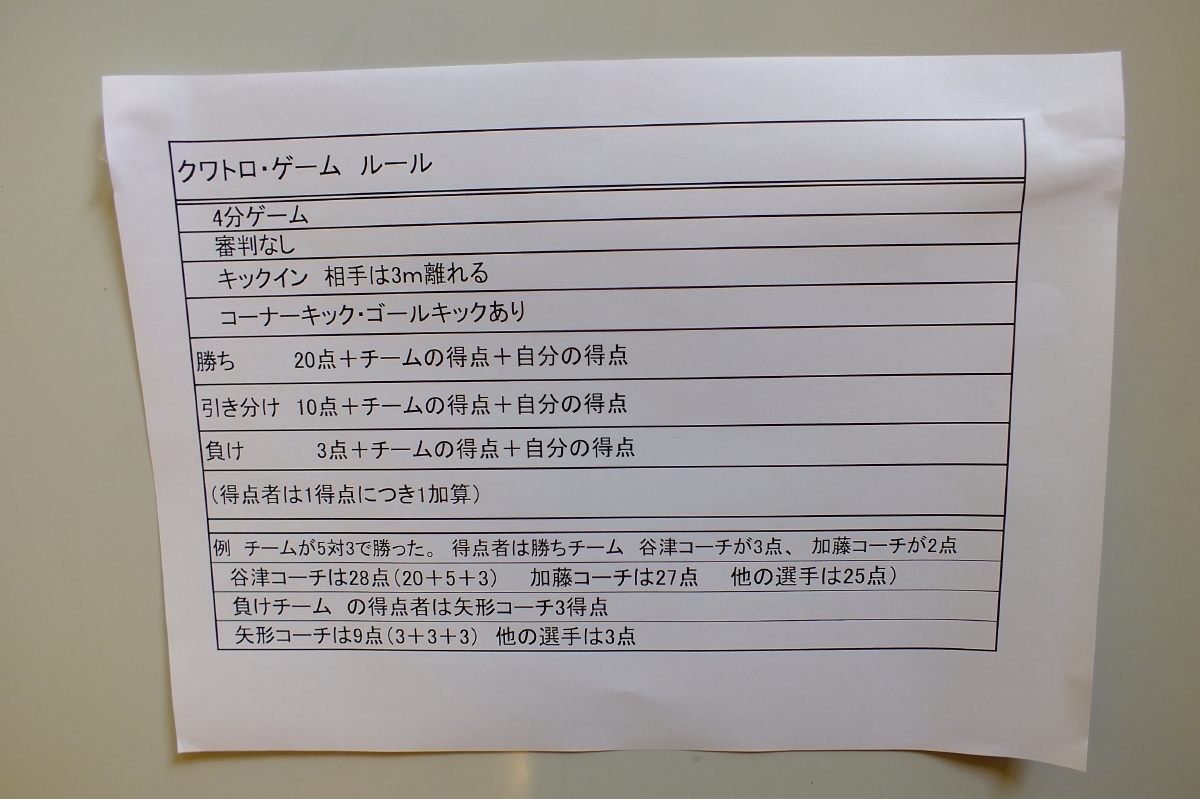 クワトロ・ゲーム　ルール
4分ゲーム
審判なし
キックイン　相手は3m離れる
コーナーキック・ゴールキックあり
勝ち　　　20点＋チームの得点＋自分の得点
引き分け　10点＋チームの得点＋自分の得点
負け　　　3点＋チームの得点＋自分の得点
（得点者は1得点につき1加算）
例　チームが5対3で勝った。　得点者は勝ちチーム　谷津コーチが3点、　加藤コーチが2点
谷津コーチは28点（20＋5＋3）　　加藤コーチは27点　　他の選手は25点）
負けチーム　の得点者は矢形コーチ3得点
矢形コーチは9点（3＋3＋3）　他の選手は3点